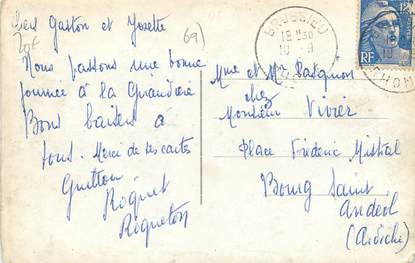 Gaston et Yvette
69)
20€
Nous passons une bonne
journée à la Giraudière
Bons baisers à
tous. Merci de tes cartes
Guitton
Roquet
Roqueton
BRUSSIEU
18 H30
10 - 9
RHÔNE
12F
RF
Mme et Mr
chez
Monsieur Vivier
Place Frédéric Mistral
Bourg Saint
Andéol
(Ardèche)